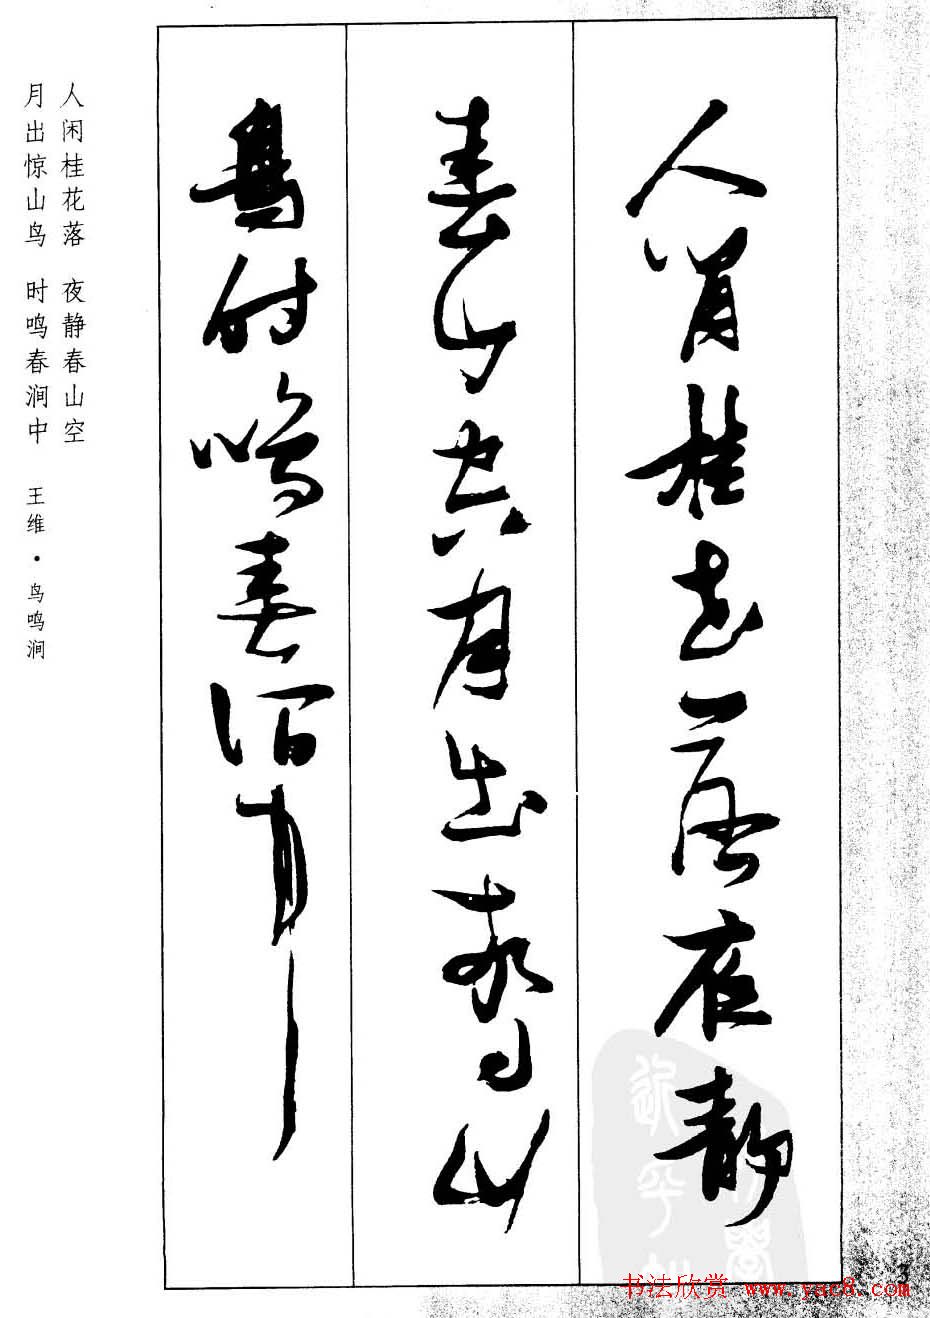 人閒桂花落夜靜
春山空月出驚山
鳥時鳴春澗中
人闲桂花落 夜静春山空
月出惊山鸟 时鸣春涧中 王维·鸟鸣涧
3
书法欣赏 www.yac8.com